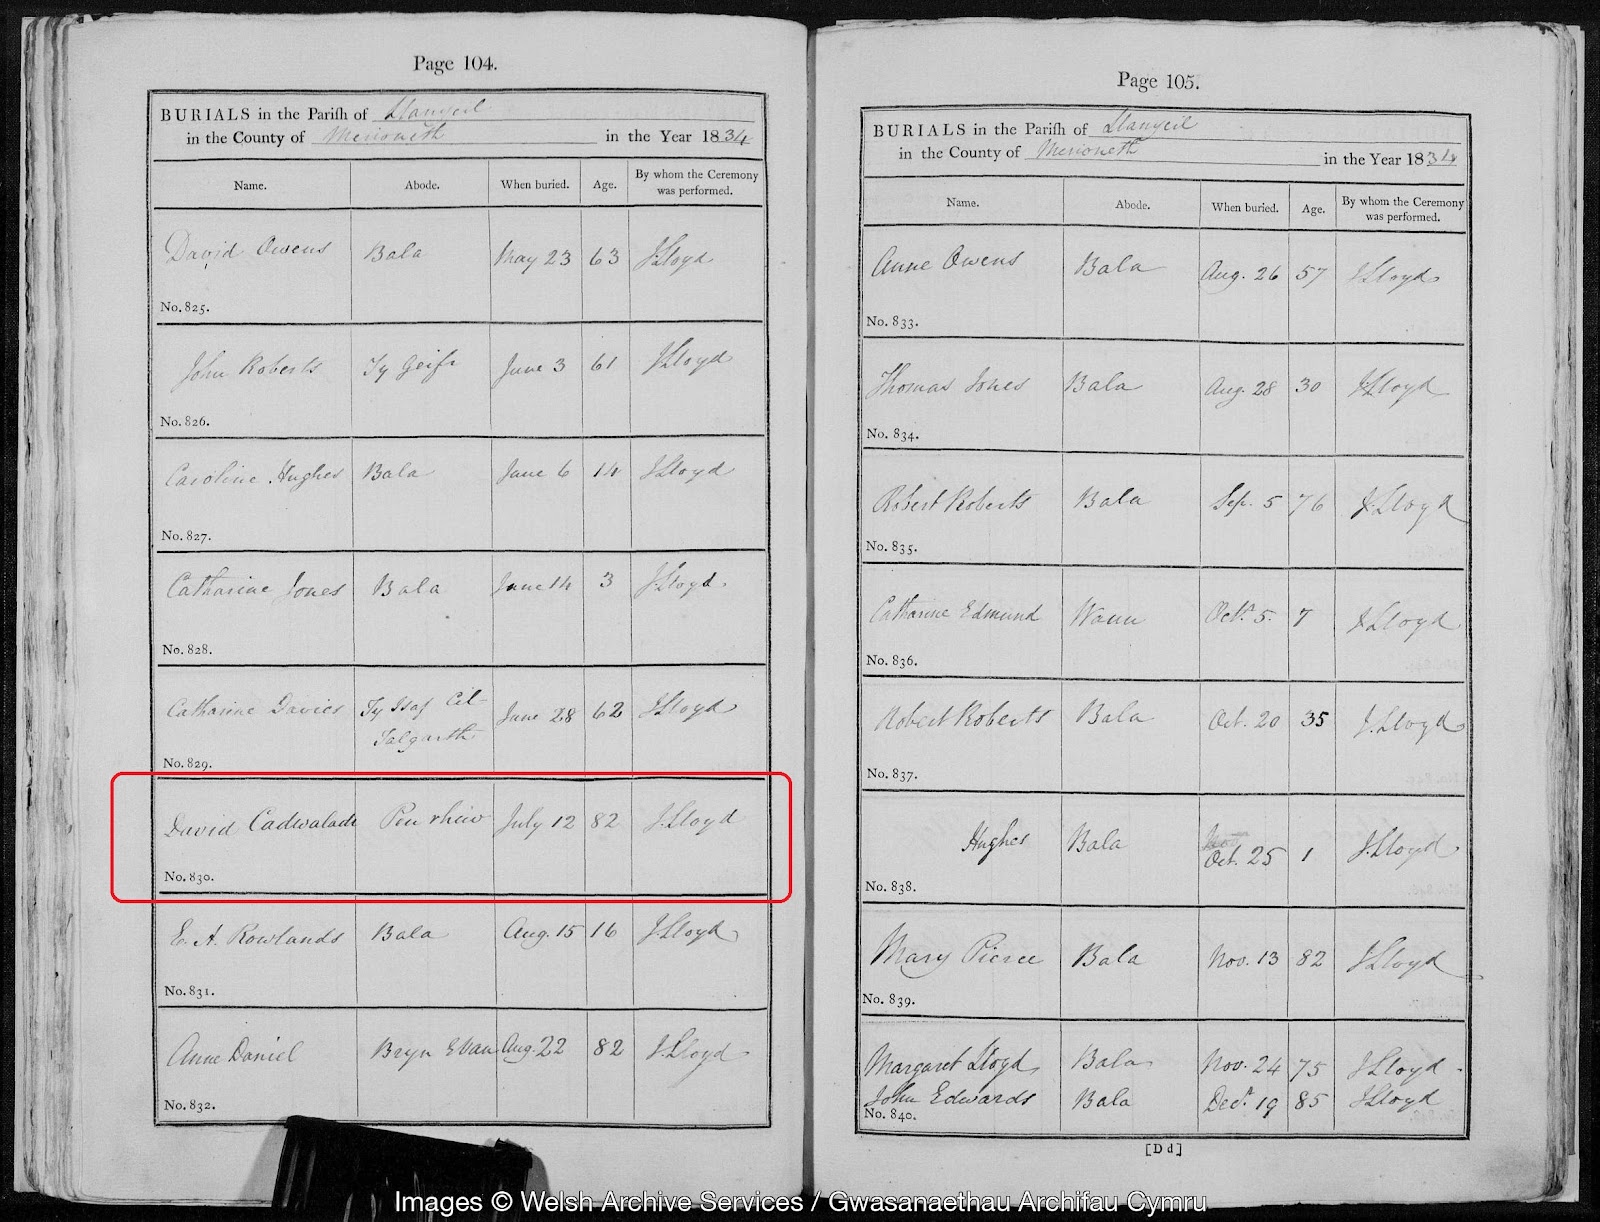 Page 104.
BURIALS in the Parish of Llanycil
in the County of Merioneth in the Year 1834
Name. Abode. When buried. Age. By whom the Ceremony was performed.
David Owens Bala May 23 63 J Lloyd
No. 825.
John Roberts Ty Geifr June 3 61 J Lloyd
No. 826.
Caroline Hughes Bala June 6 14 J Lloyd
No. 827.
Catharine Jones Bala June 14 3 J. Lloyd.
No. 828.
Catharine Davies Ty Issaf Cil- June 28 62 J Lloyd
Talgarth
No. 829.
David Cadwalade Pen rhiw July 12 82 J. Lloyd
No. 830.
E. A. Rowlands Bala Aug. 15 16 J Lloyd
No. 831.
Anne Daniel Bryn Evan Aug. 22 82 J. Lloyd
No. 832.
Page 105.
BURIALS in the Parish of Llanycil
in the County of Merioneth in the Year 1834
Name. Abode. When buried. Age. By whom the Ceremony was performed.
Anne Owens Bala Aug. 26 57 J Lloyd
No. 833.
Thomas Jones Bala Aug. 28 30 J Lloyd
No. 834.
Robert Roberts Bala Sep. 5 76 J Lloyd
No. 835.
Catharine Edmund Octr. 5. 7 J Lloyd
No. 836.
Robert Roberts Bala Oct. 20 35 J. Lloyd
No. 837.
Hughes Bala Oct. 25 1 J. Lloyd
No. 838.
Mary Pierce Bala Nov. 13 82 J Lloyd
No. 839.
Margaret Lloyd Bala Nov. 24 75 J Lloyd
John Edwards Bala Decr. 19 85 J Lloyd
No. 840.
[D d]
Images © Welsh Archive Services / Gwasanaethau Archifau Cymru